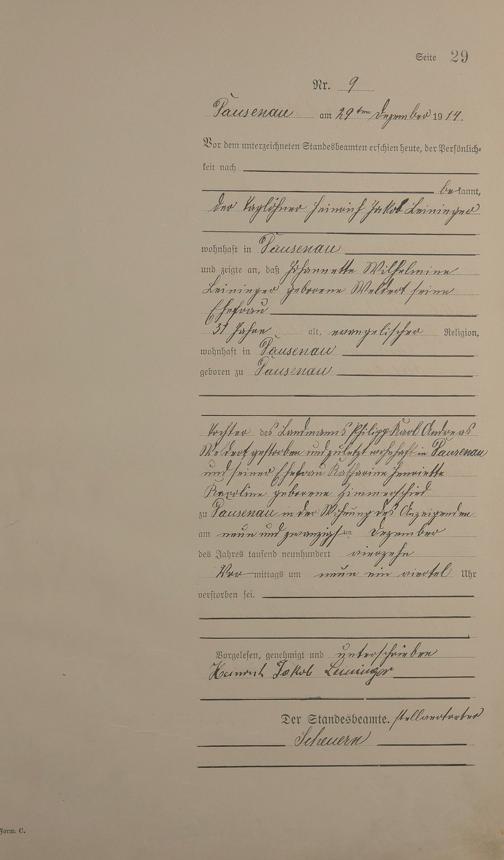 Seite 29
Nr. 9
Pausenau am 29ten Dezember 1914.
Vor dem unterzeichneten Standesbeamten erschien heute, der Persönlich-
keit nach
bekannt,
der Taglöhner Heinrich Jakob Leininger
wohnhaft in Pausenau
und zeigte an, daß Johannette Wilhelmine
Leininger geborene Weldert seine
Ehefrau
31 Jahre alt, evangelischer Religion,
wohnhaft in Pausenau
geboren zu Pausenau
Tochter des Landmanns Philipp Karl Andreas
Weldert gestorben und zuletzt wohnhaft in Pausenau
und seiner Ehefrau Katharine Henriette
Karoline geborene Zimmerschied
zu Pausenau in der Wohnung des Anzeigenden
am neun und zwanzigsten Dezember
des Jahres tausend neunhundert vierzehn
Vor mittags um neun ein viertel Uhr
verstorben sei.
Vorgelesen, genehmigt und unterschrieben
Heinrich Jakob Leininger
Der Standesbeamte. stellvertreter
Scheuern
Form. C.